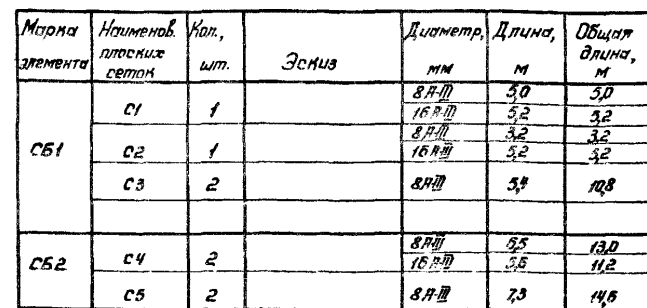 Марка элемента Наименов. плоских сеток Кол., шт. Эскиз Диаметр, мм Длина, м Общая длина, м
СБ1 С1 1 8А-III 5,0 5,0
16А-III 5,2 5,2
С2 1 8А-III 3,2 3,2
16А-III 5,2 5,2
С3 2 8А-III 5,4 10,8
СБ2 С4 2 8А-III 13,0
16А-III 5,6 11,2
С5 2 8А-III 7,3 14,6